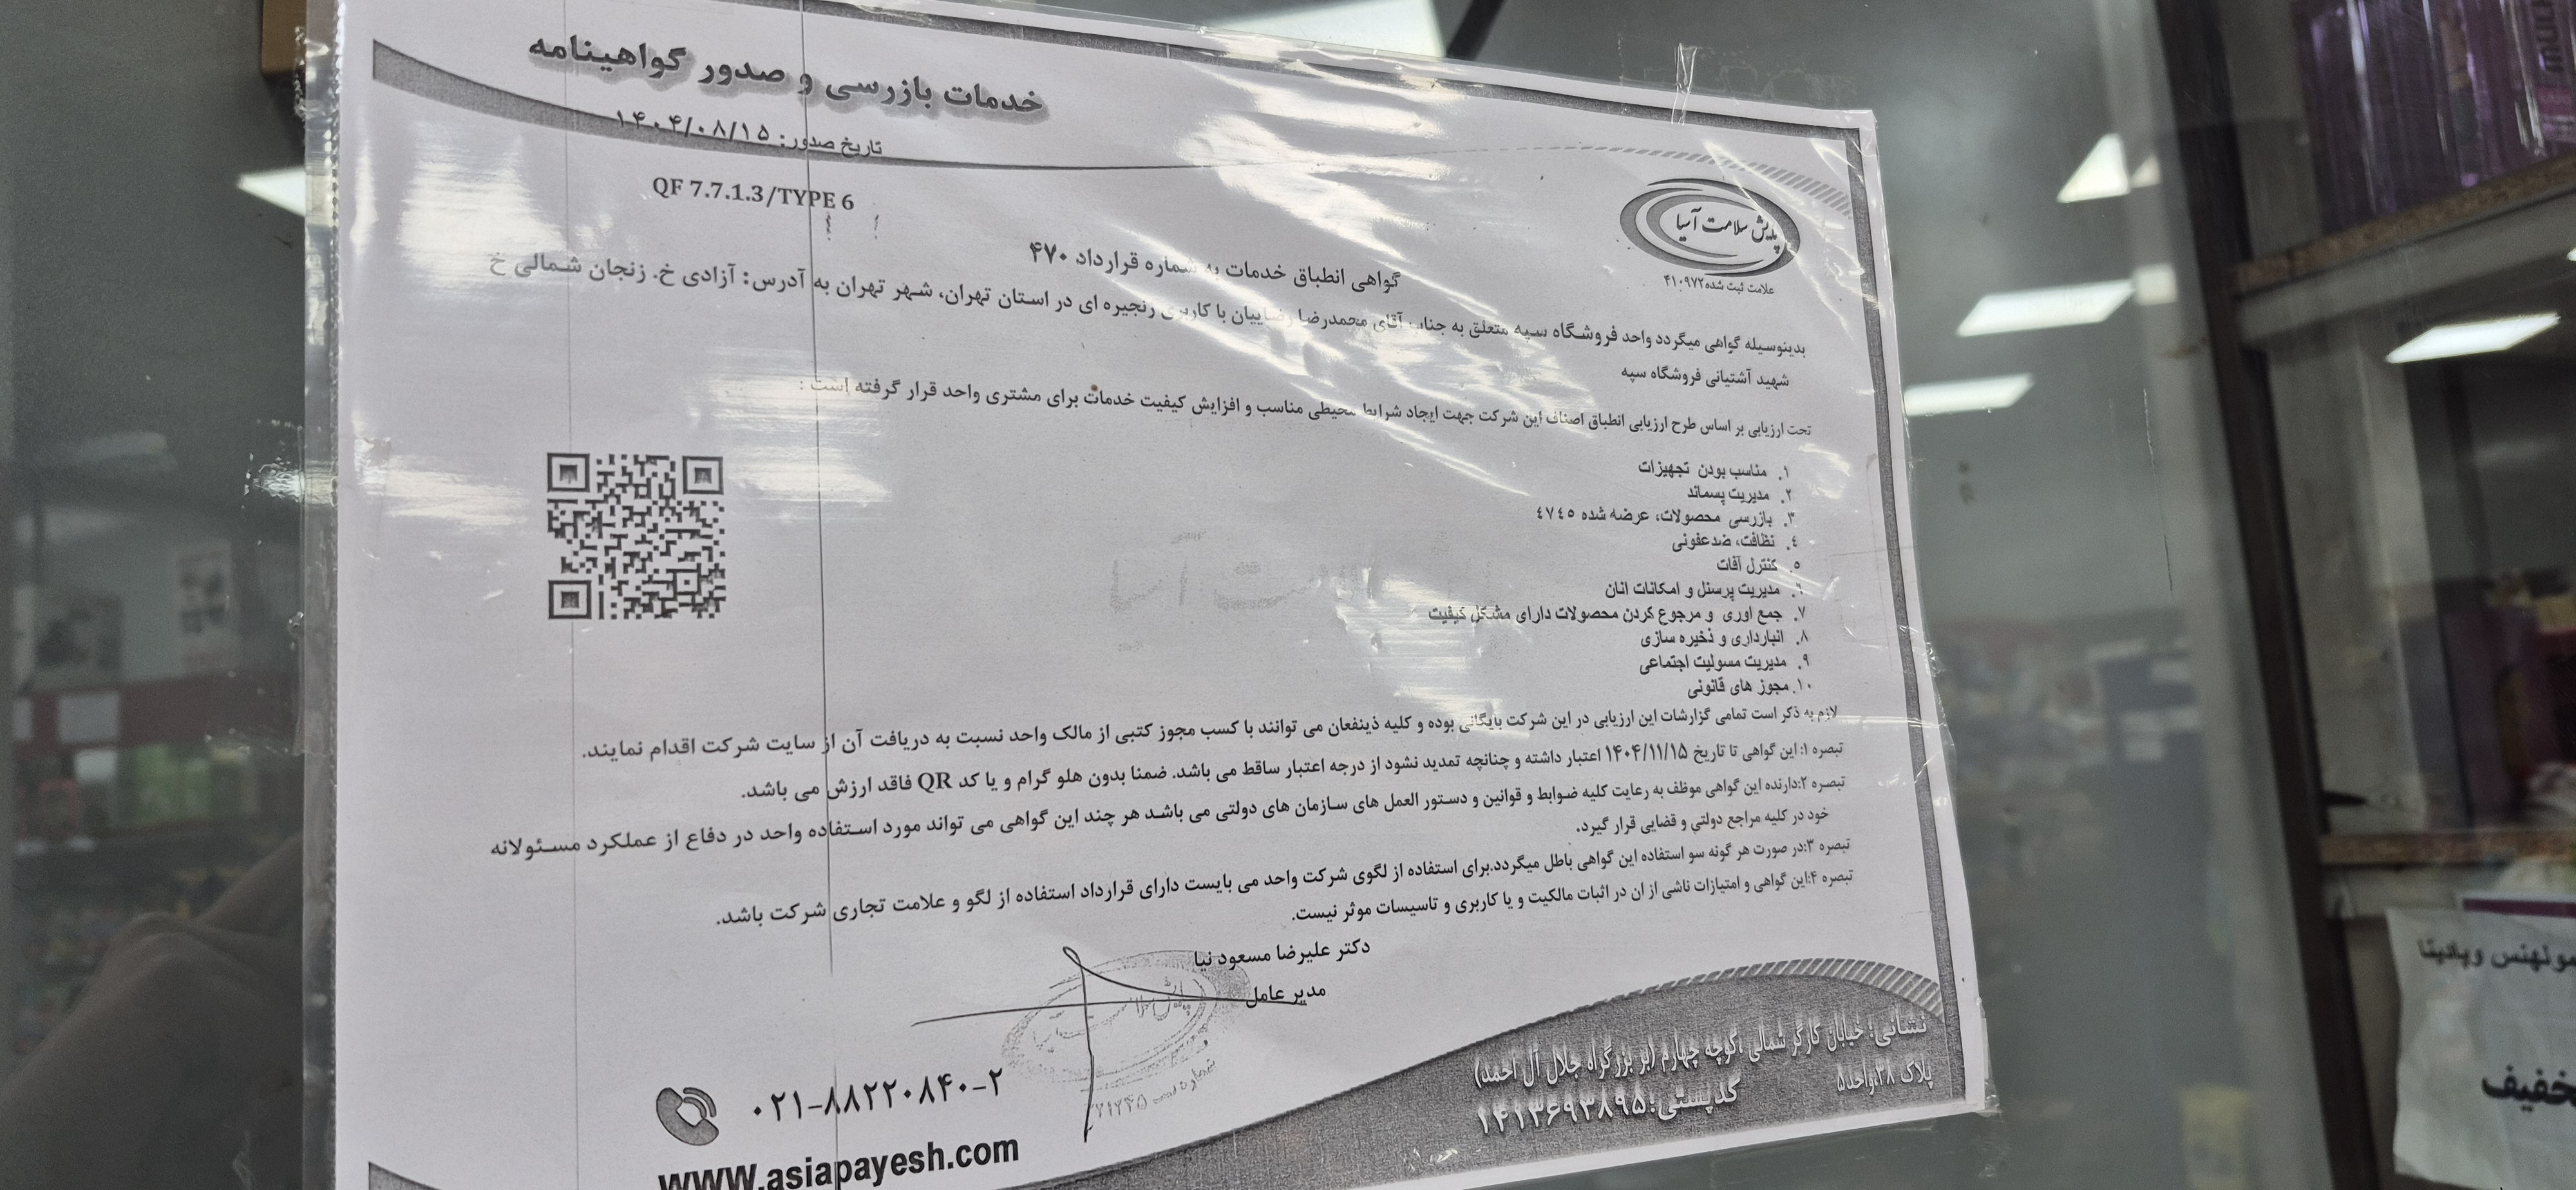 خدمات بازرسی و صدور گواهینامه
تاریخ صدور: ۱۴۰۴/۰۸/۱۵
QF 7.7.1.3/TYPE 6
پایش سلامت آسیا
علامت ثبت شده ۴۱۰۹۷۲
گواهی انطباق خدمات به شماره قرارداد ۴۷۰
بدینوسیله گواهی میگردد واحد فروشگاه سپه متعلق به جناب آقای محمدرضا رضاییان با کاربری زنجیره ای در استان تهران، شهر تهران به آدرس: آزادی خ. زنجان شمالی خ
شهید آشتیانی فروشگاه سپه
تحت ارزیابی بر اساس طرح ارزیابی انطباق اصناف این شرکت جهت ایجاد شرایط محیطی مناسب و افزایش کیفیت خدمات برای مشتری واحد قرار گرفته است :
۱. مناسب بودن تجهیزات
۲. مدیریت پسماند
۳. بازرسی محصولات، عرضه شده ٤٧٤٥
٤. نظافت، ضدعفونی
٥. کنترل آفات
٦. مدیریت پرسنل و امکانات انان
۷. جمع اوری و مرجوع کردن محصولات دارای مشکل کیفیت
۸. انبارداری و ذخیره سازی
۹. مدیریت مسولیت اجتماعی
۱۰. مجوز های قانونی
لازم به ذکر است تمامی گزارشات این ارزیابی در این شرکت بایگانی بوده و کلیه ذینفعان می توانند با کسب مجوز کتبی از مالک واحد نسبت به دریافت آن از سایت شرکت اقدام نمایند.
تبصره ۱: این گواهی تا تاریخ ۱۴۰۴/۱۱/۱۵ اعتبار داشته و چنانچه تمدید نشود از درجه اعتبار ساقط می باشد. ضمنا بدون هلو گرام و یا کد QR فاقد ارزش می باشد.
تبصره ۲:دارنده این گواهی موظف به رعایت کلیه ضوابط و قوانین و دستور العمل های سازمان های دولتی می باشد هر چند این گواهی می تواند مورد استفاده واحد در دفاع از عملکرد مسئولانه
خود در کلیه مراجع دولتی و قضایی قرار گیرد.
تبصره ۳:در صورت هر گونه سو استفاده این گواهی باطل میگردد.برای استفاده از لگوی شرکت واحد می بایست دارای قرارداد استفاده از لگو و علامت تجاری شرکت باشد.
تبصره ۴:این گواهی و امتیازات ناشی از ان در اثبات مالکیت و یا کاربری و تاسیسات موثر نیست.
دکتر علیرضا مسعود نیا
مدیر عامل
۰۲۱-۸۸۲۲۰۸۴۰-۲
www.asiapayesh.com
نشانی: خیابان کارگر شمالی ،کوچه چهارم (بر بزرگراه جلال آل احمد)
پلاک ۳۸،واحد۵
کدپستی:۱۴۱۳۶۹۳۸۹۵